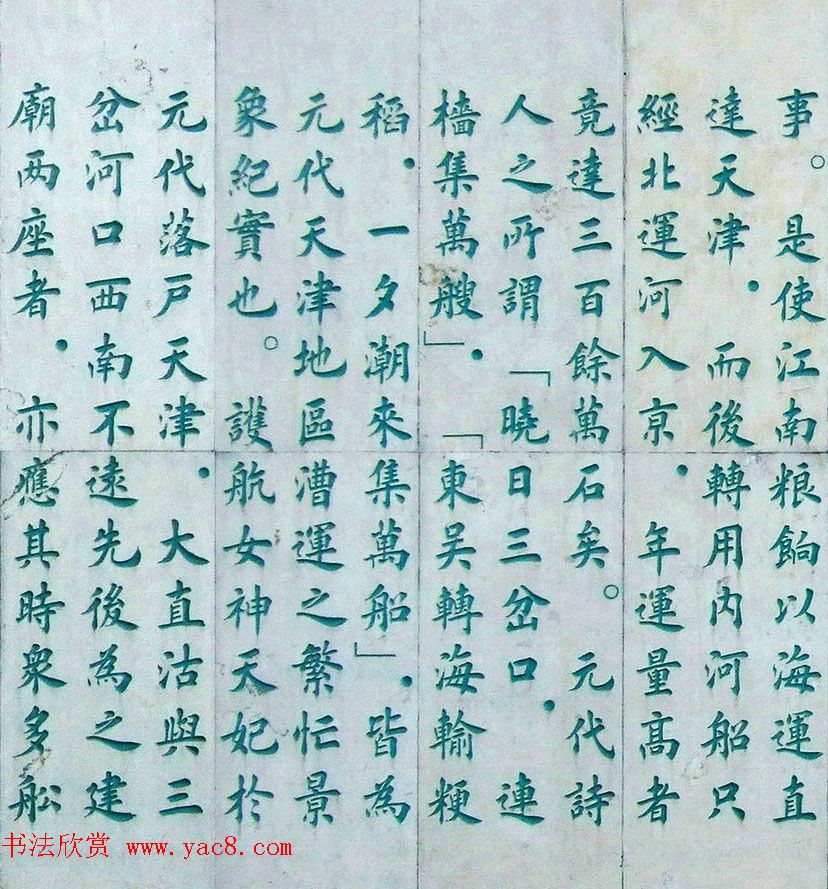 事。是使江南粮餉以海運直
達天津，而後轉用内河船只
經北運河入京，年運量高者
竟達三百餘萬石矣。元代詩
人之所謂「曉日三岔口，連
檣集萬艘」，「東吴轉海輸粳
稻，一夕潮來集萬船」，皆為
元代天津地區漕運之繁忙景
象紀實也。護航女神天妃於
元代落戶天津，大直沽與三
岔河口西南不遠先後為之建
廟两座者，亦應其時衆多舩
书法欣赏 www.yac8.com